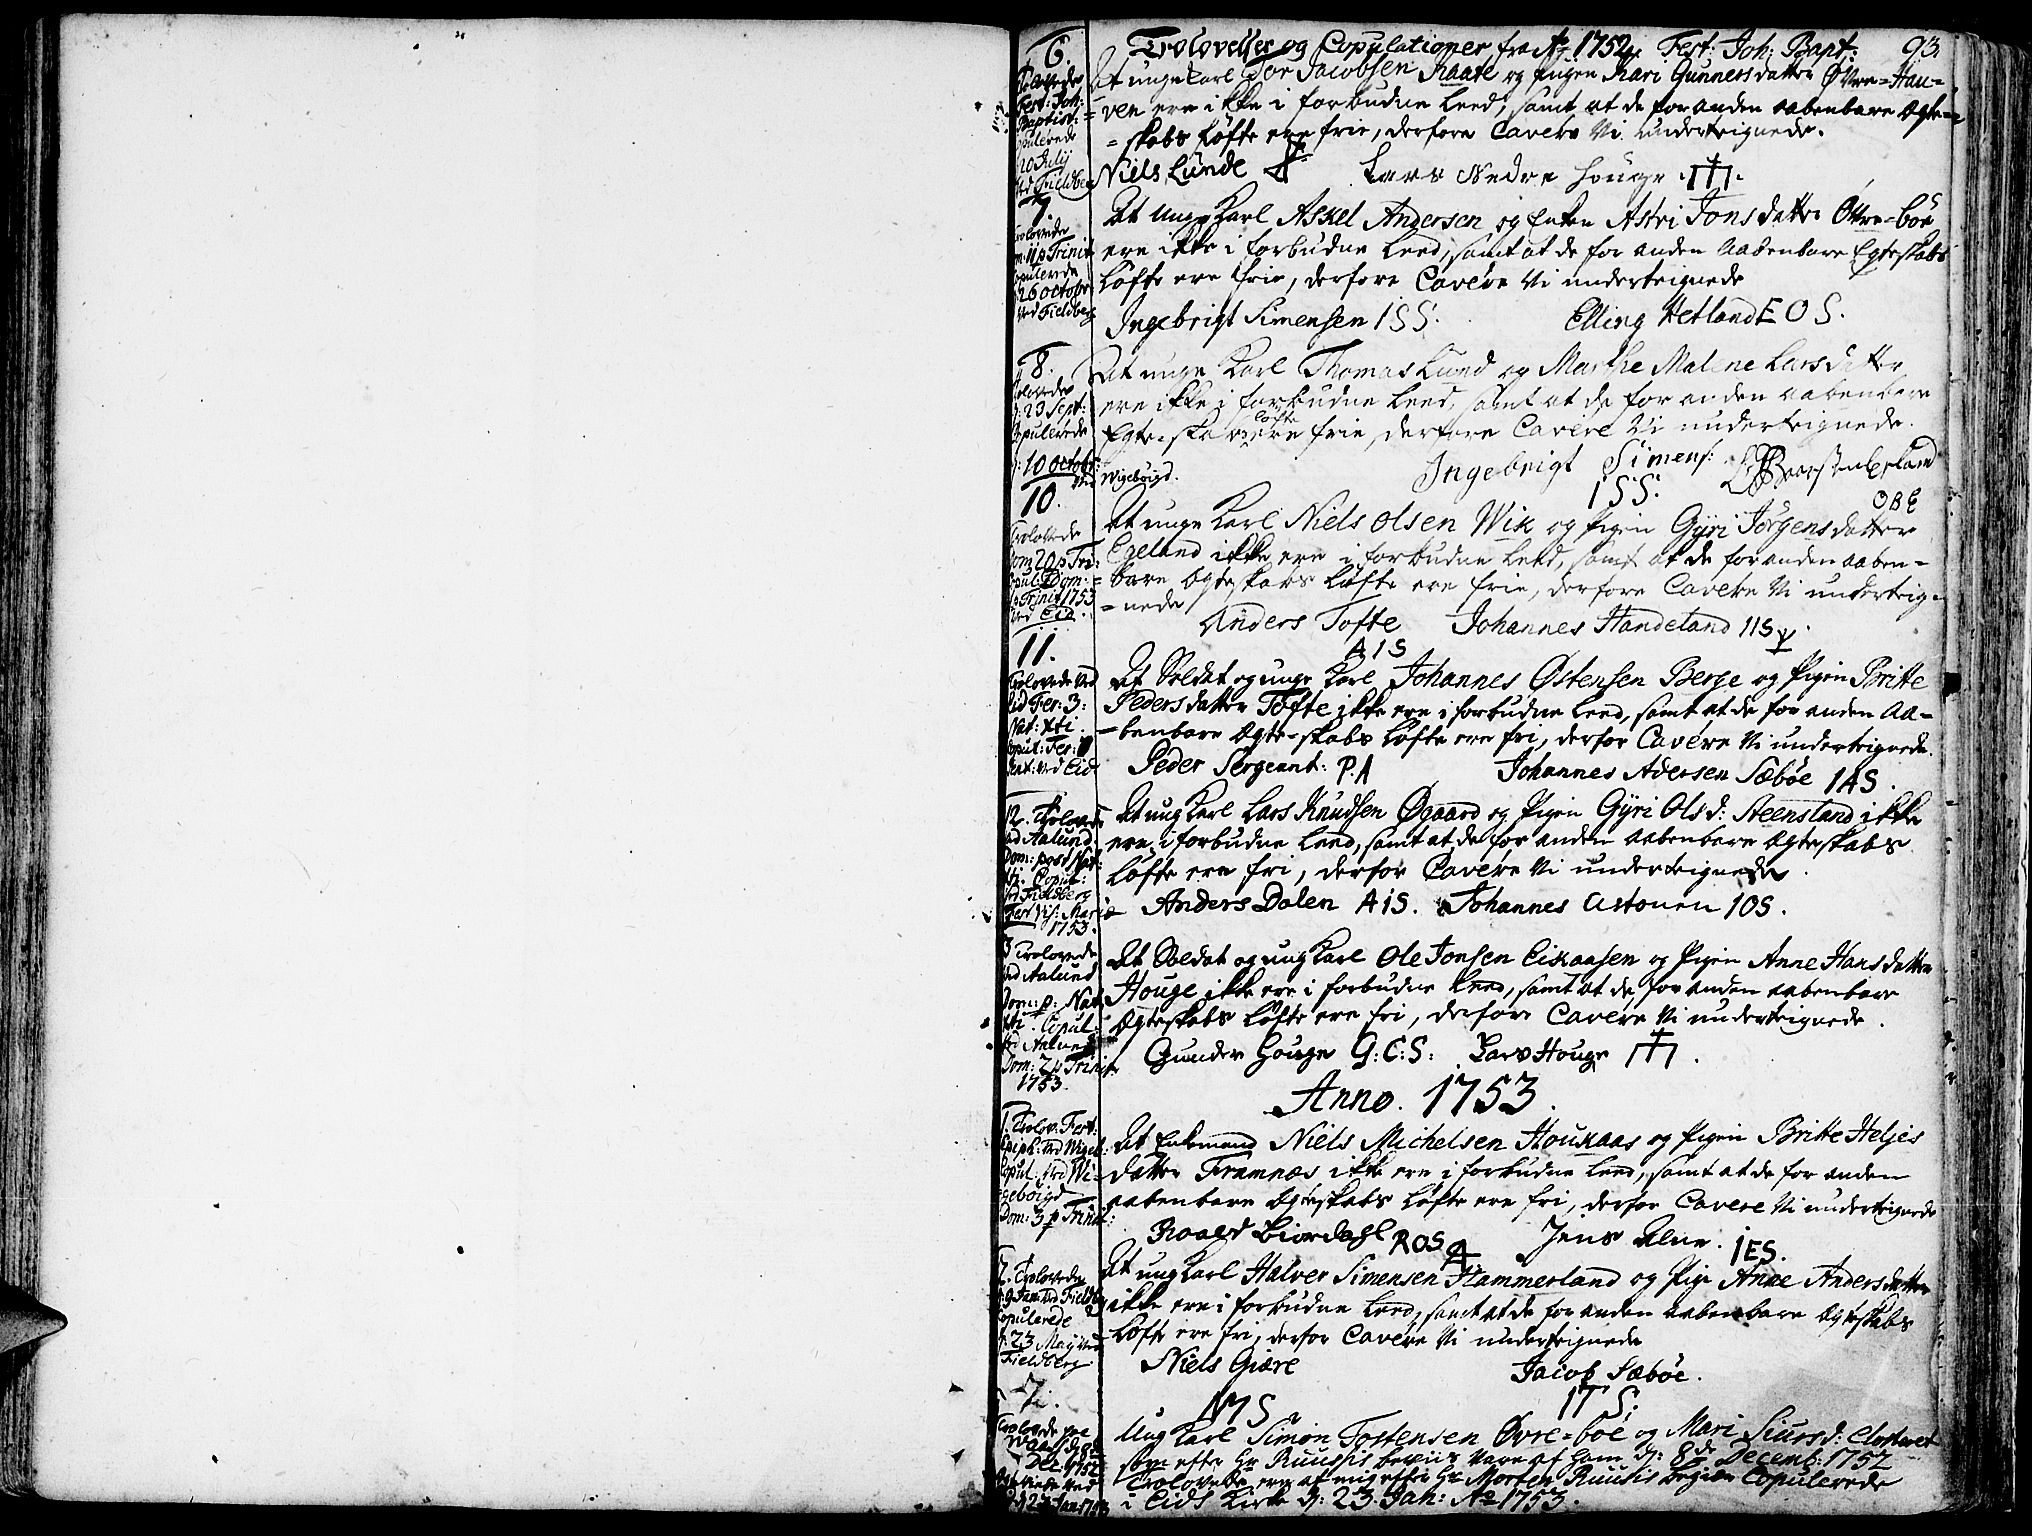 Trolovelser og Copulationer fra Ao 1752 Fest: Joh: Bapt: 93.
6.
Trolovede
Fest: Joh:
Baptist:
Copulerede
20 Julij
Ved Fieldberg
At unge karl Tor Jacobsen Raate og Pigen Kari Gunnersdatter Øvre=Hau=
=ven ere ikke i forbudne Leed, samt at de for anden aabenbare Egte=
=skabs Løfte ere frie, derfore Cavere Vi undertegnede.
Niels Lunde Lars Nedre Houge
7.
Trolovede
11 p Trinit
Copulerede
26 octobr
Ved Fieldberg
At unge Karl Askel Andersen og Enken Astri Jons datter Øvre=boe
ere ikke i forbudne Leed, samt at de for anden aabenbare Egteskabs
Løfte ere frie, derfore Cavere Vi undertegnede
Ingebrigt Simensen ISS. Elling Hetland EOS.
8.
Trolovede
d: 23 Sept:
Copulerede
d: 10 octobr:
Ved Wigebøigd.
At unge Karl Thomas Lund og Marthe Malene Larsdatter
ere ikke i forbudne Leed, samt at de for anden aabenbare
Egte=skabs løfte ere frie, derfore Cavere Vi undertegnede.
Ingebrigt Simens:
ISS.
OBE
10.
Trolovede
Dom: 20 p Tri:
Copul: Dom:
p Trinit 1753
Ved Eid.
At unge Karl Niels Olsen Wik og Pigen Gyri Jørgensdatter
Egeland ikke ere i forbudne Leed, samt at de for anden aaben=
=bare Egteskabs Løfte ere frie, derfore Cavere Vi underteig=
=nede
Anders Tofte Johannes Handeland IIS
AIS
11.
Trolovede Ved
Eid Fer: 3:
Nat: Xti.
Copul: Fer:
Pent: Ved Eid
At Soldat og unge Karl Johannes Østensen Berge og Pigen Britte
Pedersdatter Tofte ikke ere i forbudne Leed, samt at de for anden Aa=
=benbare Egte=skabs Løfte ere fri, derfor Cavere Vi undertegnede.
Peder Sergeant: P.A Johannes Adersen Sæbøe IAS.
12. Trolovede
Ved Aalund
Dom: post Nat:
Xti. Copul:
Ved Fieldberg
Fest Vis: Mariæ
1753.
At ung Karl Lars Knudsen Øgaard og Pigen Gyri Olsd: Steensland ikke
ere i forbudne Leed, samt at de for anden aabenbare Egteskabs
Løfte ere fri, derfor Cavere Vi undertegnede.
Anders Dalen AIS. Johannes IOS.
13 Trolovede
Ved Aalund
Dom: p: Nat:
Xti. Copul:
Ved Aalund
Dom: 2 p Trinit
1753.
At Soldat og ung Karl Ole Jonsen Eikaasen og Pigen Anne Hansdatter
Houge ikke ere i forbudne Leed, samt at de for anden aabenbare
Egteskabs Løfte ere fri, derfore Cavere Vi undertegnede.
Gunder Houge G:C:S: Lars Houge
Anno. 1753.
1. Trolov: Fest:
Epiph: Ved Wigeb:
Copul: Ved Wi=
gebøigd
Dom: 3 p Trinit:
At Enkemand Niels Michelsen Houkaas og Pigen Britte Heljes
datter Framnæs ikke ere i forbudne Leed, samt at de for anden
aabenbare Egteskabs Løfte ere fri, derfor Cavere Vi undertegnede
Roald Biordahl ROS Jens IES.
2. Trolovede
d: 9 Jan: Ved Fieldb:
Copulerede
d: 23 Maij Ved
Fieldberg.
At ung Karl Halvor Simensen Hammersland og Pige Anne Andersdatter
ikke ere i forbudne Leed, samt at de for anden aabenbare Egteskabs
Løfte ere fri, derfor Cavere Vi undertegnede
Niels Giære Jacob Sæbøe.
ITS.
Trolovede
Dec: 1752
23 Jan 1753
Ung Karl Simon Tostensen Øvre=boe og Mari Siursd: Closteret
som efter Hr Ruusis beviis vare af ham d: 8de Decemb: 1752
Trolovede ere af mig efter Hr Morten Ruusis begiær Copulerede
i Eids Kirke d: 23. Jan: Ao 1753.